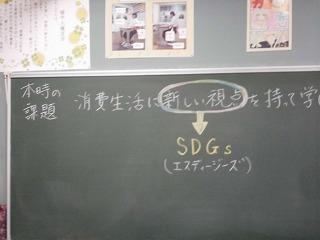 本時の
課題
消費生活に新しい視点を持って学
SDGs
(エスディージーズ)